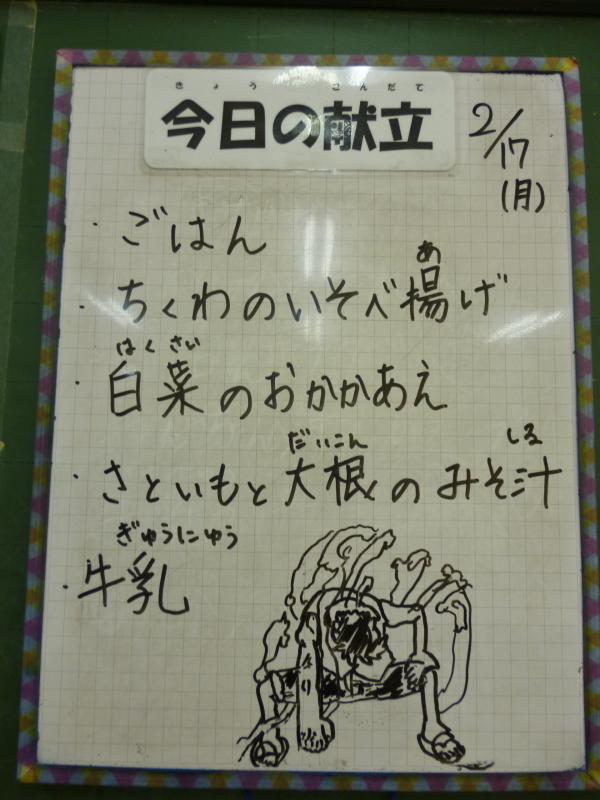 きょう こんだて
今日の献立
2/17
(月)
・ごはん
あ
・ちくわのいそべ揚げ
はくさい
・白菜のおかかあえ
だいこん しる
・さといもと大根のみそ汁
ぎゅうにゅう
・牛乳